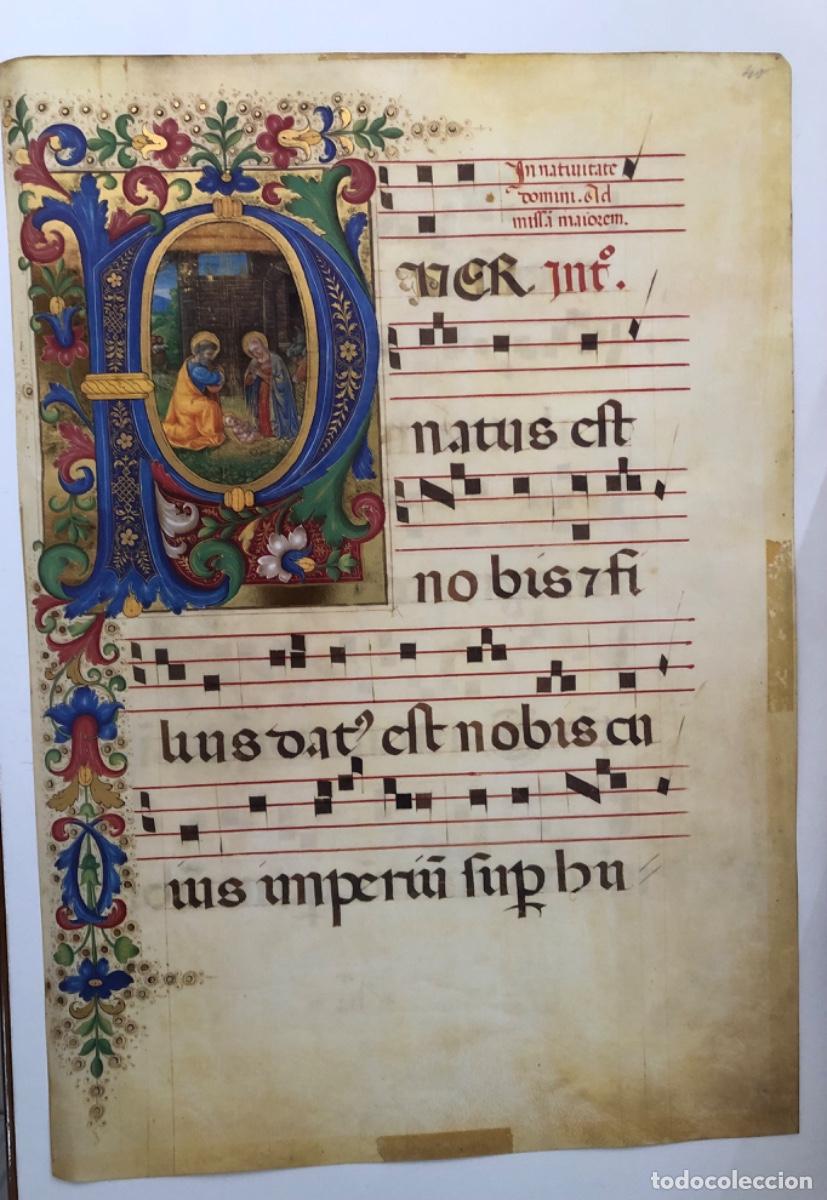 40
In natiuitate
domini. Ad
missā maiorem.
PUER Intº.
natus est
nobis ⁊ fi
lius datꝰ est nobis cu
ius imperiū suꝑ hu
todocoleccion